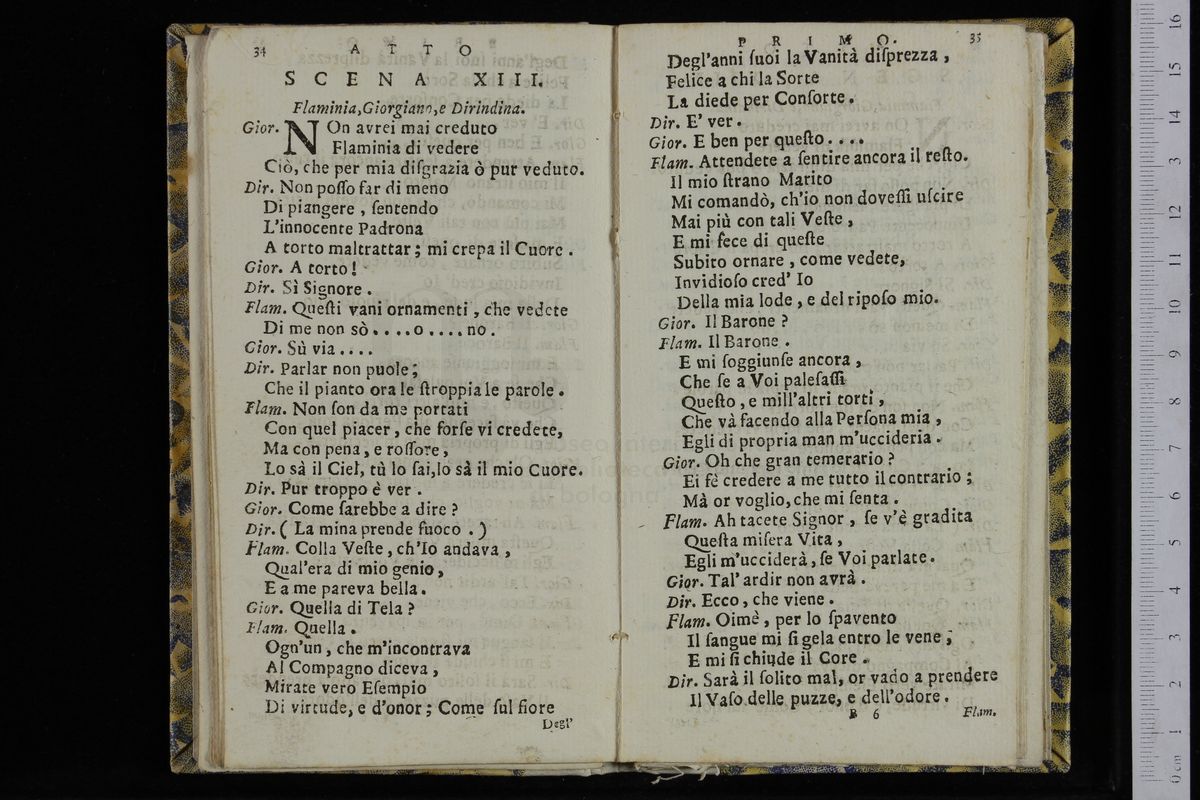 34 ATTO
SCENA XIII.
Flaminia, Giorgiano, e Dirindina.
Gior. NOn avrei mai creduto
Flaminia di vedere
Ciò, che per mia diſgrazia ò pur veduto.
Dir. Non poſſo far di meno
Di piangere, ſentendo
L'innocente Padrona
A torto maltrattar; mi crepa il Cuore.
Gior. A torto!
Dir. Sì Signore.
Flam. Queſti vani ornamenti, che vedete
Di me non sò.....o....no.
Gior. Sù via....
Dir. Parlar non puole;
Che il pianto ora le ſtroppia le parole.
Flam. Non ſon da me portati
Con quel piacer, che forſe vi credete,
Ma con pena, e roſſore,
Lo sà il Ciel, tù lo ſai, lo sà il mio Cuore.
Dir. Pur troppo è ver.
Gior. Come ſarebbe a dire?
Dir. (La mina prende fuoco.)
Flam. Colla Veſte, ch'Io andava,
Qual'era di mio genio,
E a me pareva bella.
Gior. Quella di Tela?
Flam. Quella.
Ogn'un, che m'incontrava
Al Compagno diceva,
Mirate vero Eſempio
Di virtude, e d'onor; Come ſul fiore
Degl'
PRIMO. 35
Degl'anni ſuoi la Vanità diſprezza,
Felice a chi la Sorte
La diede per Conſorte.
Dir. E' ver.
Gior. E ben per queſto....
Flam. Attendete a ſentire ancora il reſto.
Il mio ſtrano Marito
Mi comandò, ch'io non doveſſi uſcire
Mai più con tali Veſte,
E mi fece di queſte
Subito ornare, come vedete,
Invidioſo cred' Io
Della mia lode, e del ripoſo mio.
Gior. Il Barone?
Flam. Il Barone.
E mi ſoggiunſe ancora,
Che ſe a Voi paleſaſſi
Queſto, e mill'altri torti,
Che và facendo alla Perſona mia,
Egli di propria man m'uccideria.
Gior. Oh che gran temerario?
Ei fè credere a me tutto il contrario;
Mà or voglio, che mi ſenta.
Flam. Ah tacete Signor, ſe v'è gradita
Queſta miſera Vita,
Egli m'ucciderà, ſe Voi parlate.
Gior. Tal' ardir non avrà.
Dir. Ecco, che viene.
Flam. Oimè, per lo ſpavento
Il ſangue mi ſi gela entro le vene;
E mi ſi chiude il Core.
Dir. Sarà il ſolito mal, or vado a prendere
Il Vaſo delle puzze, e dell'odore.
B 6 Flam.